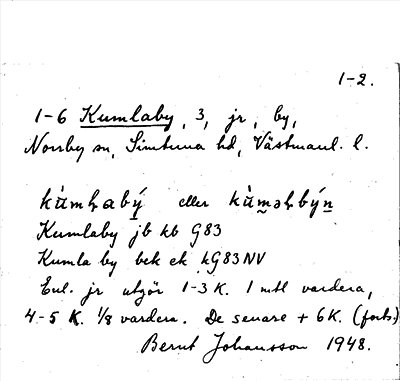 1-2.
1-6 Kumlaby, 3, jr, by,
Norrby sn, Simtuna hd, Västmanl. l.
kùmlabý̱ eller kùm̰əlbýn̰
Kumlaby jb kb G83
Kumla by bek ek kG83NV
Enl. jr utgör 1-3 K. 1 mtl vardera,
4-5 K. 1/8 vardera. De senare + 6 K. (forts)
Bernt Johansson 1948.